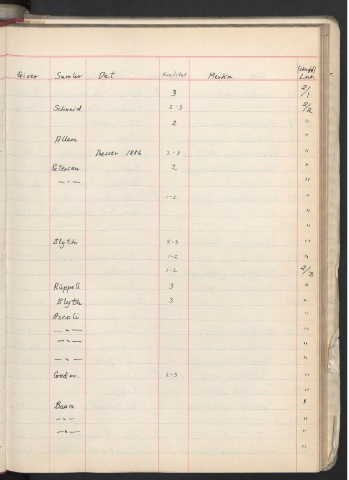 Giver Samler Det. Kvalitet Merkn. (skap#) L.nr.
3 2/1
Schmid 2-3 2/2
2 "
Allen "
Dresser 1884 2-3 "
Petersen 2 "
— " — "
1-2 "
"
"
Blyth 2-3 "
1-2 "
1-2 2/3
Rüppell 3 "
Blyth 3 "
Ascoli "
— " — "
— " — "
— " — "
Godm. 2-3 "
"
Baars "
— " — "
— " — "
"